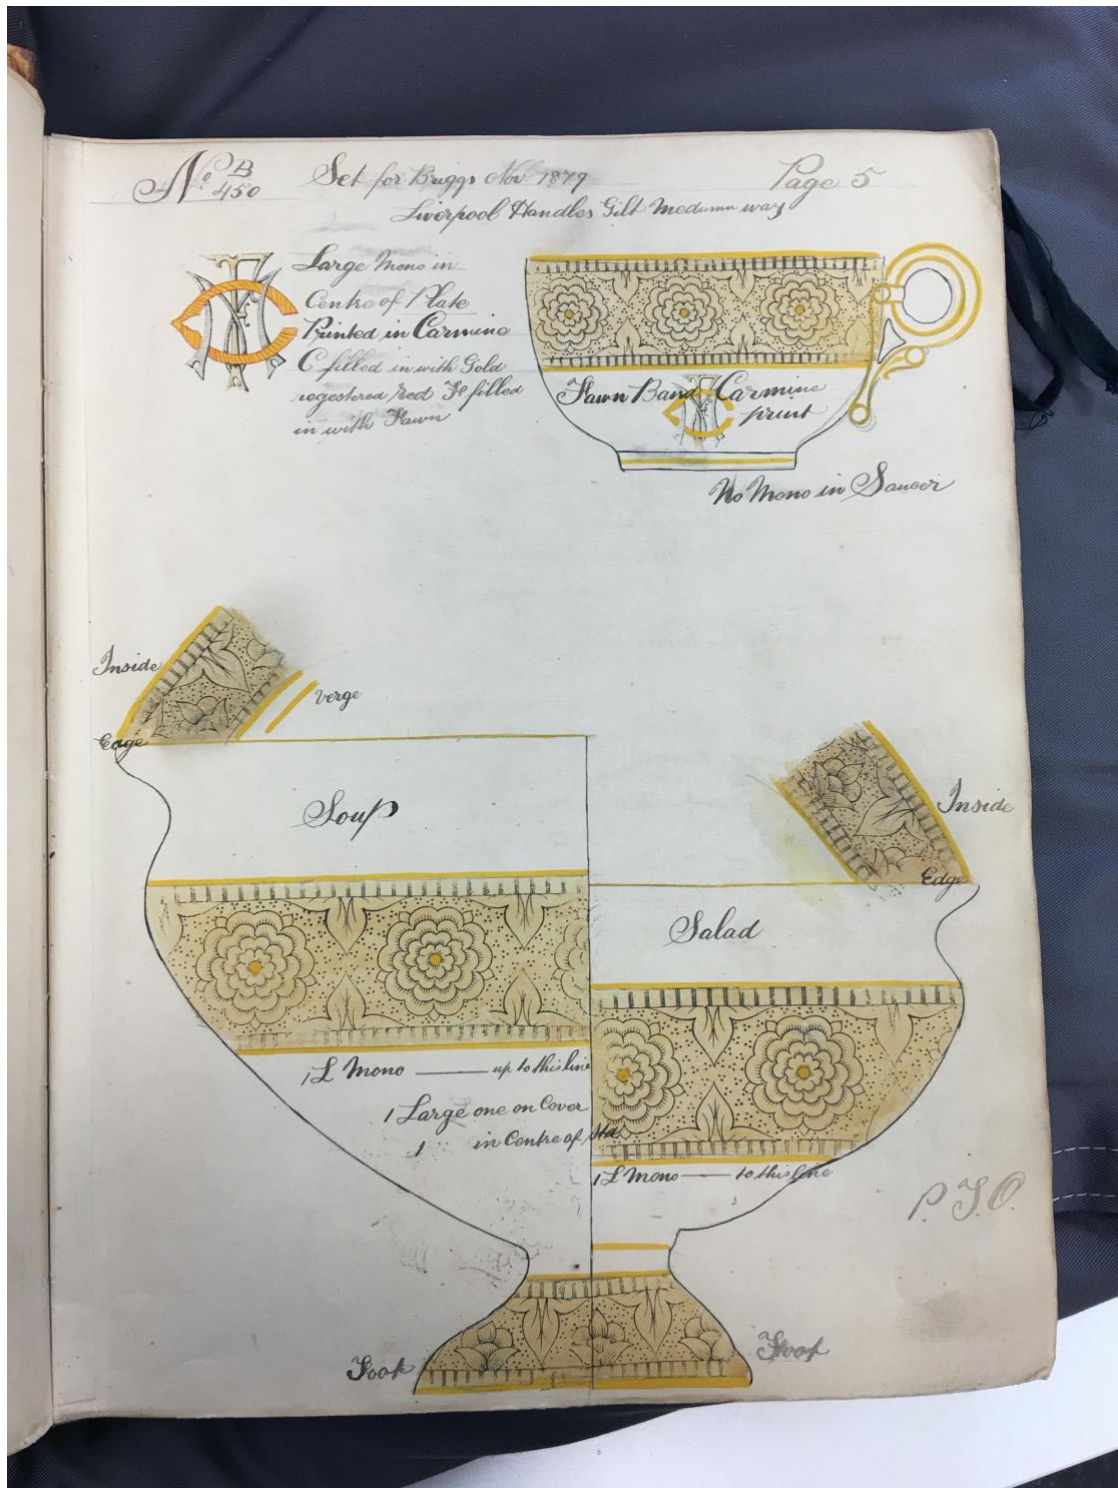 No. B 450
Set for Briggs Nov 1879
Page 5
Liverpool Handles Gilt Medumn way
Large Mono in
Centre of Plate
Printed in Carmine
C filled in with Gold
regestered red H filled
in with Fawn
Fawn Band Carmine
print
No Mono in Saucer
Inside
verge
Edge
Soup
Inside
Edge
Salad
1 L Mono — up to this line
1 Large one on Cover
1 " in Centre of Std
1 L Mono — to this line
P.T.O.
Foot
Foot